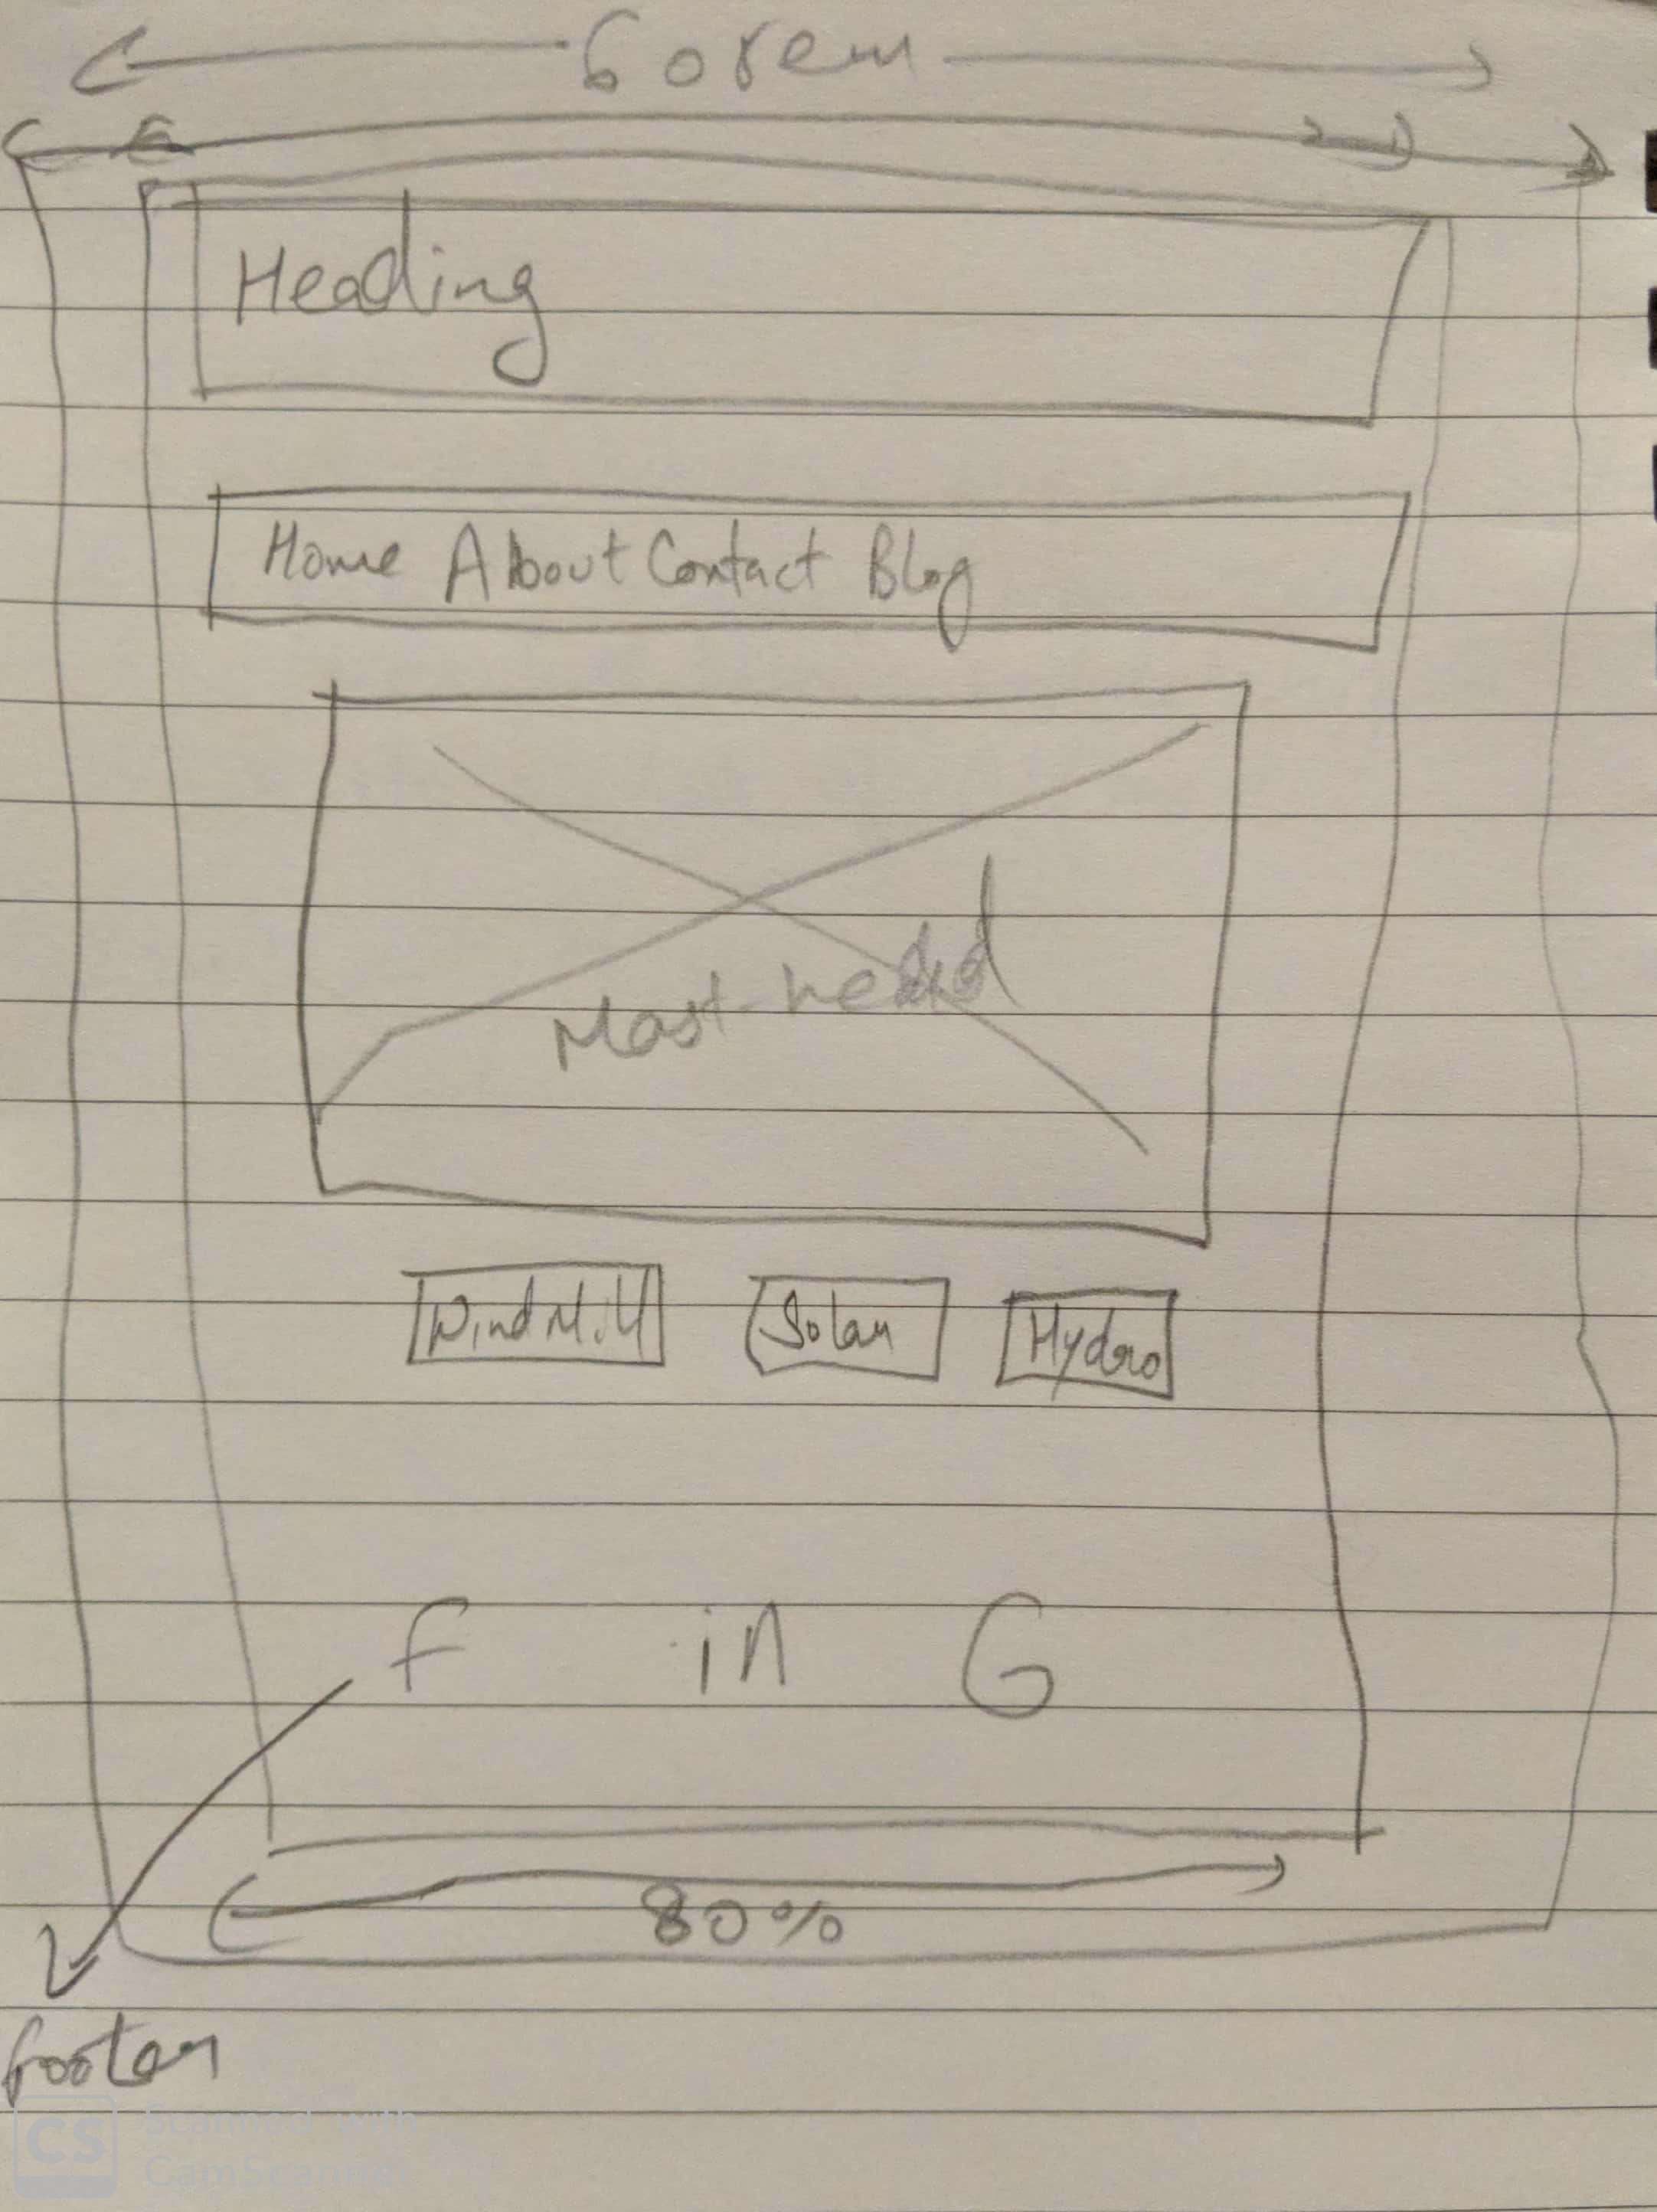 60rem
Heading
Home About Contact Blog
Mast-head
WindMill Solar Hydro
F in G
80%
footer
CS Scanned with
CamScanner